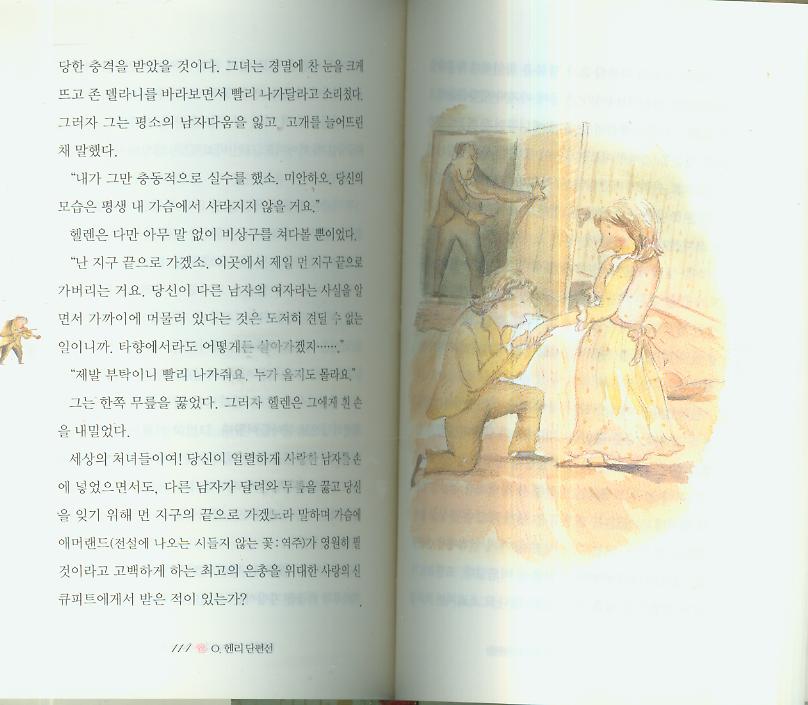 당한 충격을 받았을 것이다. 그녀는 경멸에 찬 눈을 크게
뜨고 존 델라니를 바라보면서 빨리 나가달라고 소리쳤다.
그러자 그는 평소의 남자다움을 잃고 고개를 늘어뜨린
채 말했다.
“내가 그만 충동적으로 실수를 했소. 미안하오. 당신의
모습은 평생 내 가슴에서 사라지지 않을 거요.”
헬렌은 다만 아무 말 없이 비상구를 쳐다볼 뿐이었다.
“난 지구 끝으로 가겠소. 이곳에서 제일 먼 지구 끝으로
가버리는 거요. 당신이 다른 남자의 여자라는 사실을 알
면서 가까이에 머물러 있다는 것은 도저히 견딜 수 없는
일이니까. 타향에서라도 어떻게든 살아가겠지…….”
“제발 부탁이니 빨리 나가줘요. 누가 올지도 몰라요.”
그는 한쪽 무릎을 꿇었다. 그러자 헬렌은 그에게 흰 손
을 내밀었다.
세상의 처녀들이여! 당신이 열렬하게 사랑한 남자를 손
에 넣었으면서도, 다른 남자가 달려와 무릎을 꿇고 당신
을 잊기 위해 먼 지구의 끝으로 가겠노라 말하며 가슴에
애머랜드(전설에 나오는 시들지 않는 꽃:역주)가 영원히 필
것이라고 고백하게 하는 최고의 은총을 위대한 사랑의 신
큐피트에게서 받은 적이 있는가?
O. 헨리 단편선